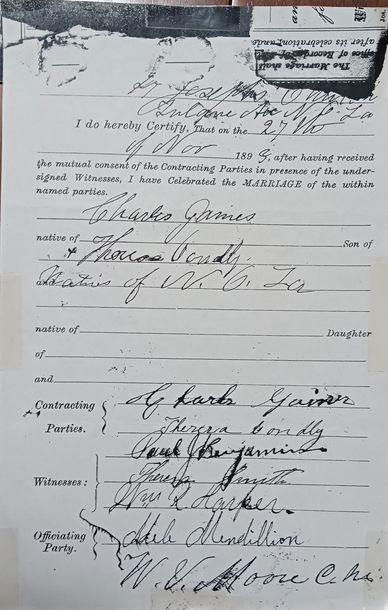 St Josephs Church
Tulane Av N.O. La
I do hereby Certify, That on the 27th
of Nov 1899, after having received
the mutual consent of the Contracting Parties in presence of the under-
signed Witnesses, I have Celebrated the MARRIAGE of the within
named parties.
Charles James
native of Son of
Condly.
and Natives of N. O. La
native of Daughter
of
and
Contracting
Parties.
Charles
Theresa Condly
Paul J Benjamin
Witnesses:
Theresa Smith
Wm R Harper.
Officiating
Party.
Mendillion
W. V. Moore C. M.
The Marriage shall
after its celebration, and